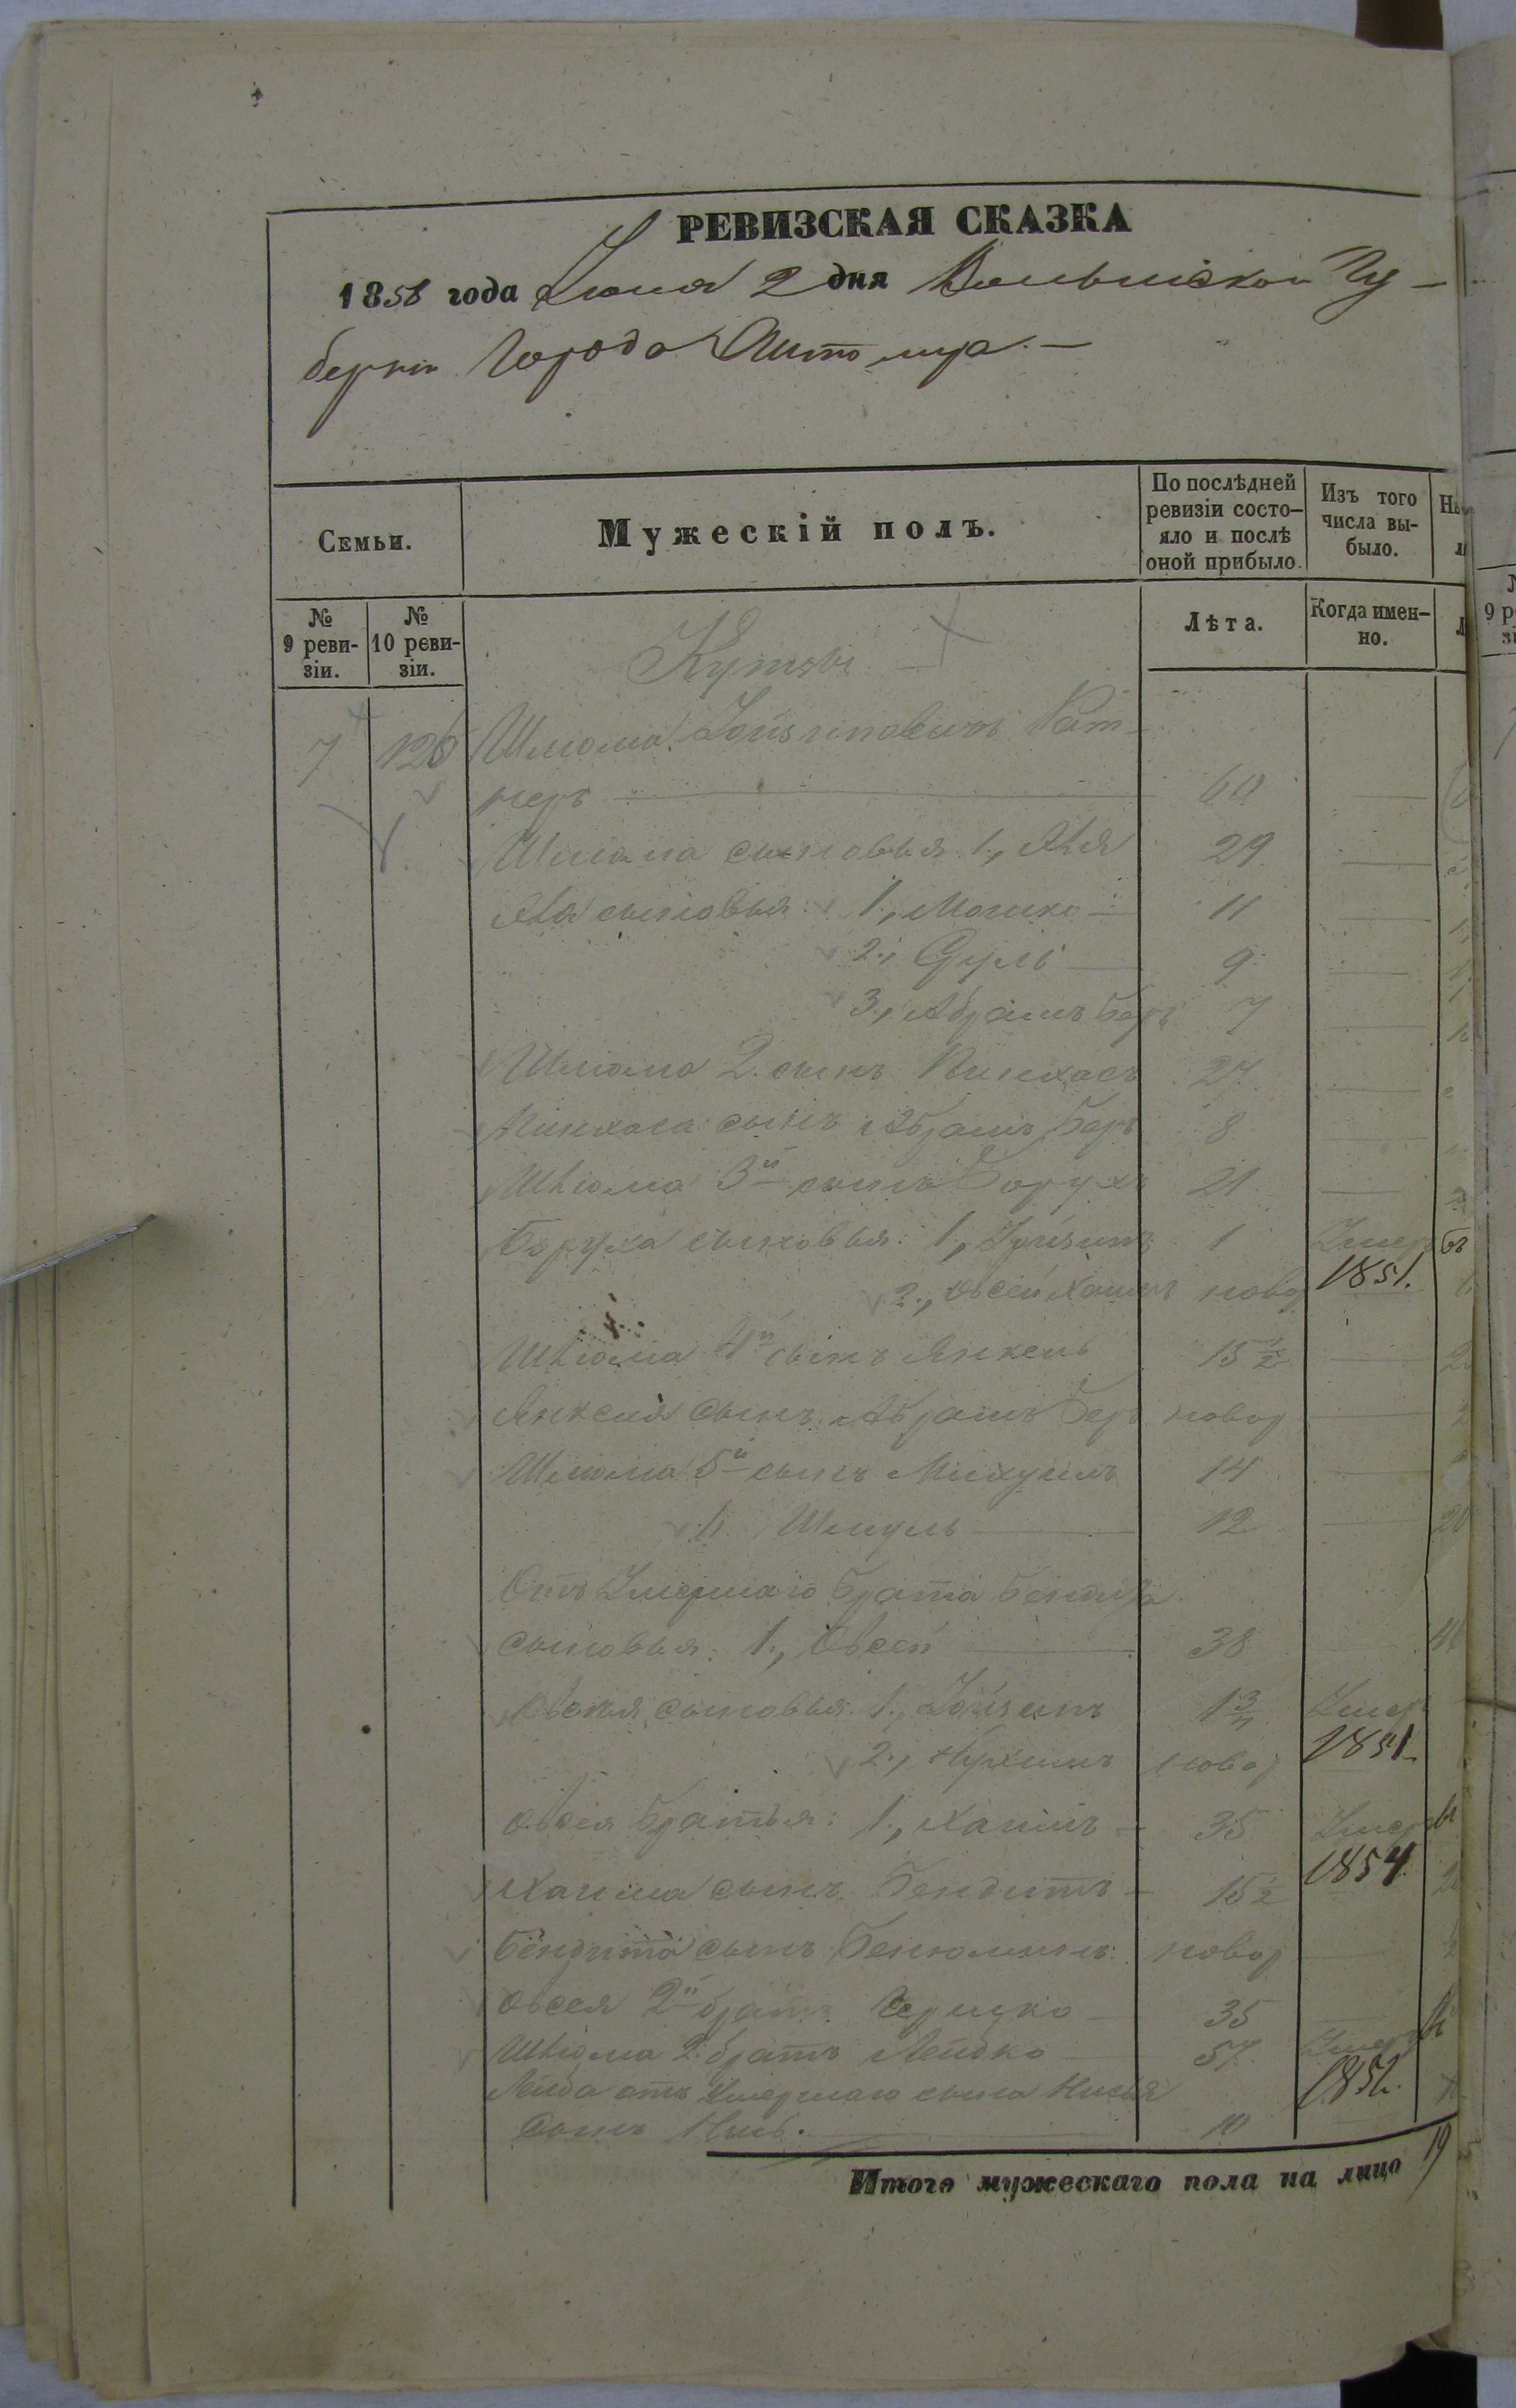 РЕВИЗСКАЯ СКАЗКА
1858 года Июня 2 дня Волынской Гу-
бернии Города Житомира.—
Семьи.
Мужескій полъ.
По послѣдней ревизіи состо-
яло и послѣ оной прибыло.
Изъ того числа вы-
было.
№ 9 реви-
зіи.
№ 10 реви-
зіи.
Лѣта.
Когда имен-
но.
Купцы
7 126 Шліома Іойзиповичъ
неръ 60
Шліома сыновья 1., 29
сыновья: 1., Мошко 11
2., Сруль 9
3., Абрамъ Беръ 7
Шліома 2. сынъ Пинхасъ 27
Пинхаса сынъ Абрамъ Беръ 8
Шліома 3й сынъ Борухъ 21
Боруха сыновья: 1., Іойзипъ 1 Умеръ
1851.
2., Овсей Хаимъ новор
Шліома 4й сынъ Янкель 15½
Янкеля сынъ Абрамъ Беръ новор
Шліома 5й сынъ 14
6. Шмуль 12
Отъ Умершаго брата Бендита
сыновья: 1., Овсей 38
Овсея сыновья: 1., Іойзипъ 1¾ Умеръ
1851
2., Нухимъ новор
Овсея братья: 1., Хаимъ 35 Умеръ
1854.
Хаима сынъ Бендитъ 15½
Бендита сынъ Бенюминъ новор
Овсея 2й братъ Гершко 35
Шліома 2. братъ Лейбко 57 Умеръ
1851.
Лейба отъ Умершаго сына
Сынъ 10
Итого мужескаго пола на лицо 19